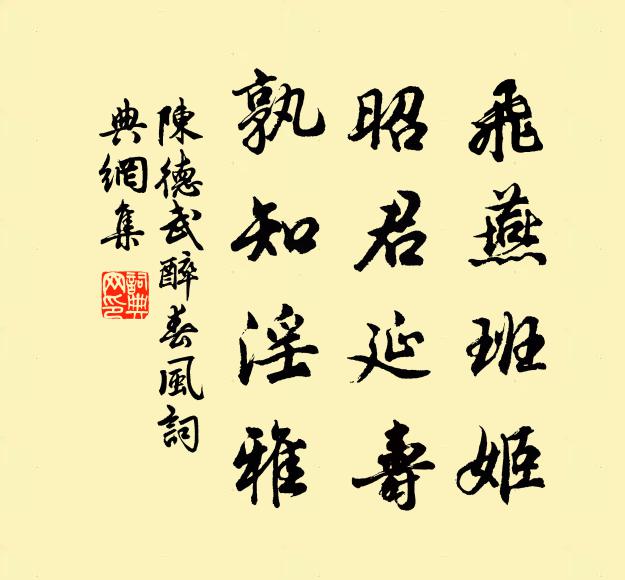 飛燕班姬
昭君延壽
孰知淫雅
陳德武醉春風詞
典網集
詞典网印